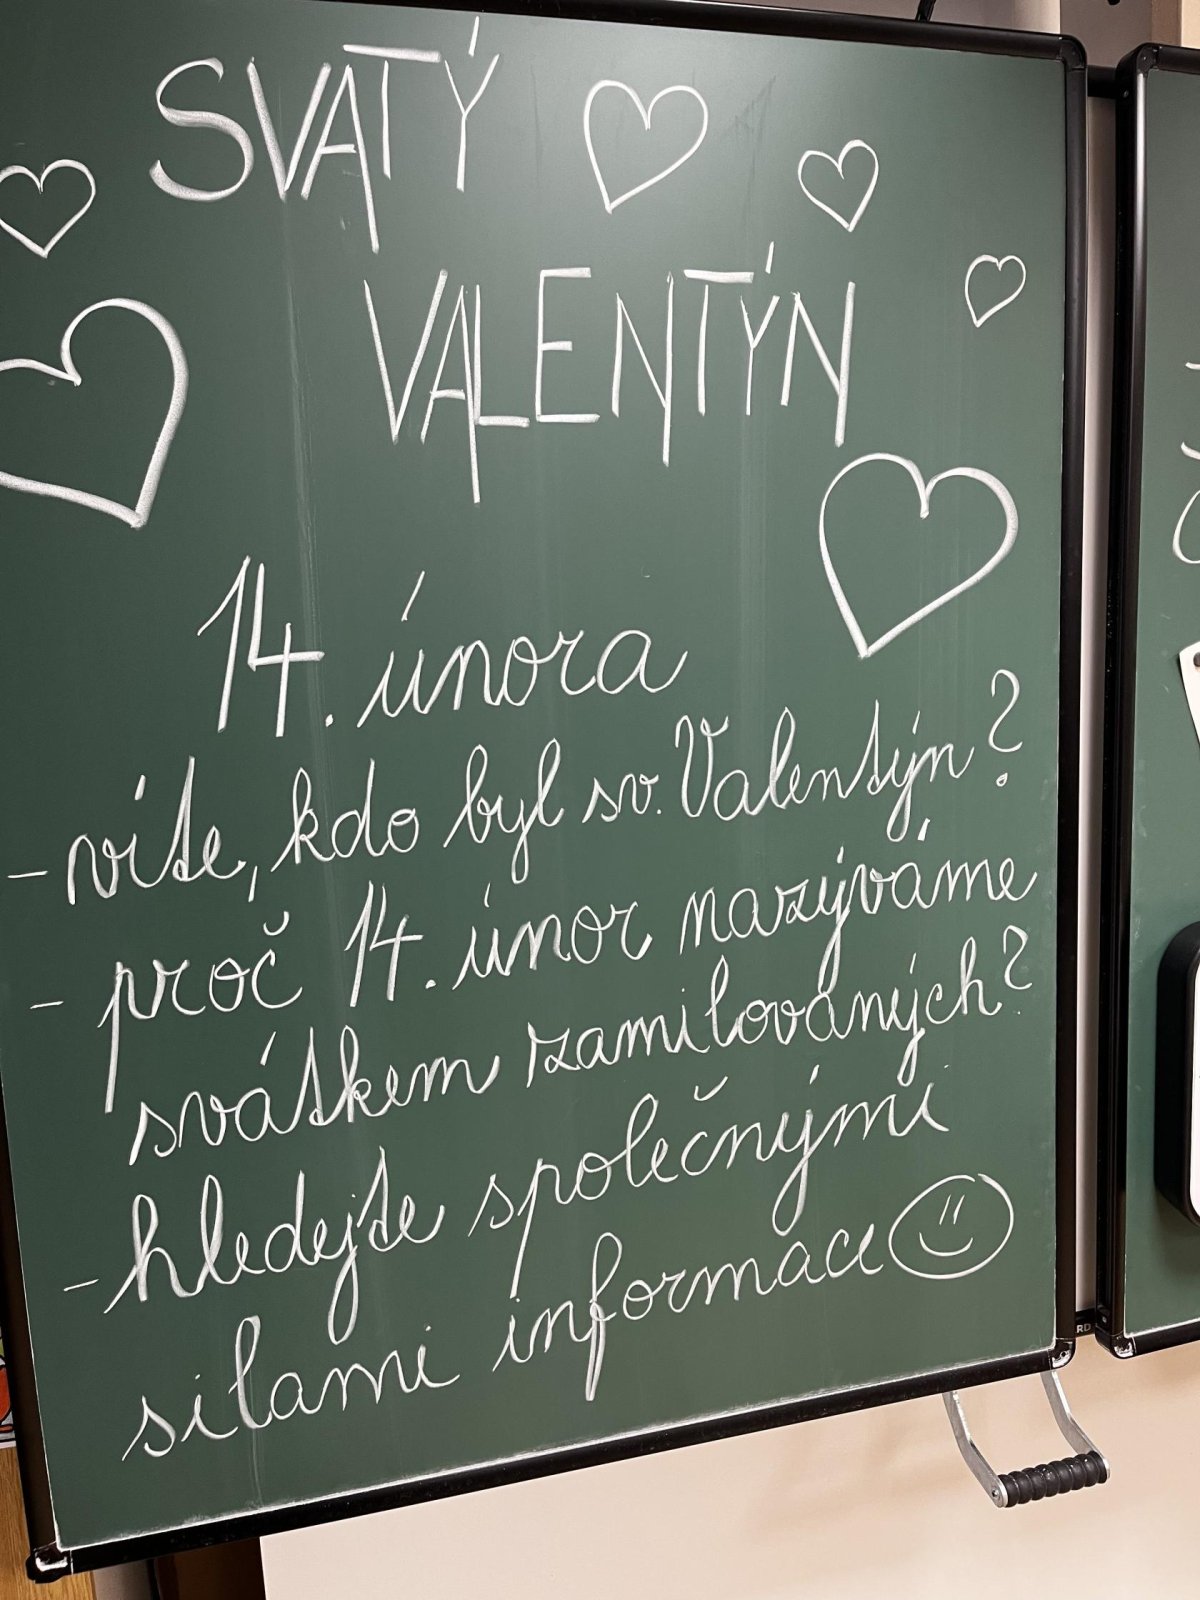 SVATÝ
VALENTÝN
14. února
- víte, kdo byl sv. Valentýn?
- proč 14. únor nazýváme
svátkem zamilovaných?
- hledejte společnými
silami informace
RD